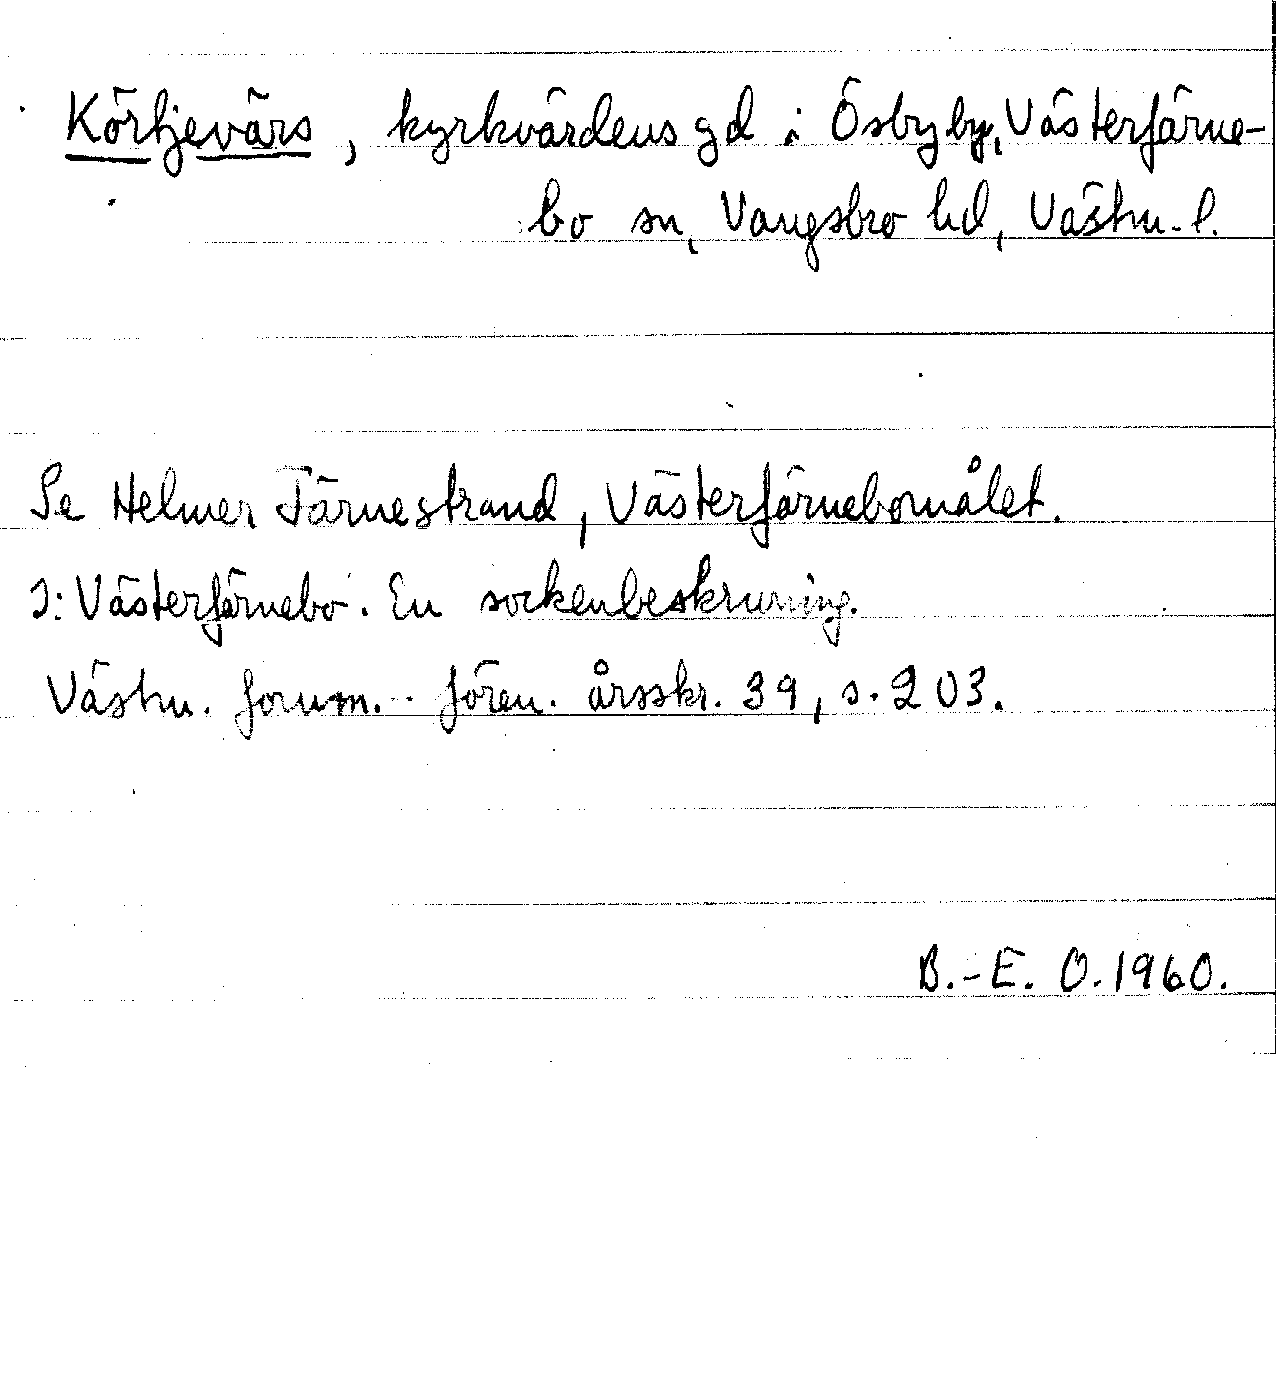 Körtjevärs, kyrkvärdens gd i Ösby by, Västerfärne-
bo sn, Vangsbro hd, Västm. l.
Se Helmer Färnestrand, Västerfärnebomålet.
I: Västerfärnebo. En sockenbeskrivning.
Västm. fornm. fören. årsskr. 39, s. 203.
B.-E. O. 1960.